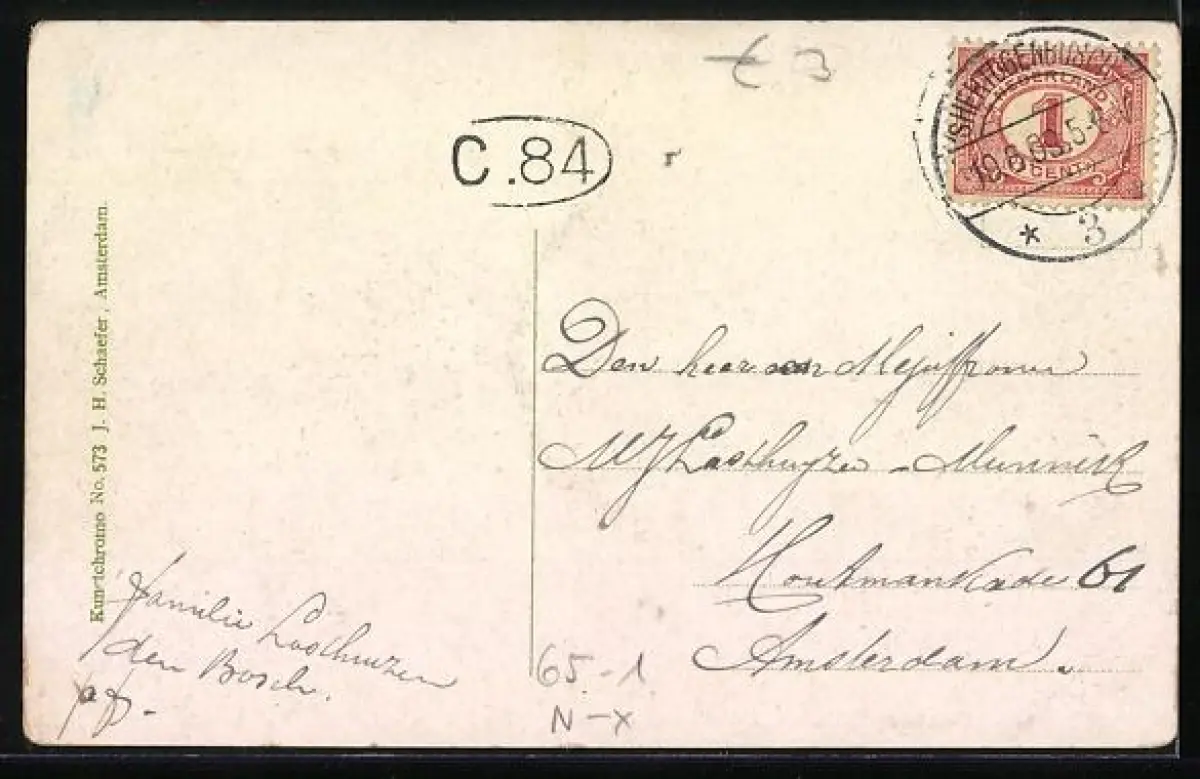 € 3
'SHERTOGENBOSCH
NEDERLAND
1
CENT
* 3
C.84
Kunstchromo No. 573 J. H. Schaefer, Amsterdam.
Den heer en Mejuffrouw
MJ Loschuyzen - Munnick
Houtmankade 61
Amsterdam.
familie Loschuizen
den Bosch.
pf.
65-1
N-X